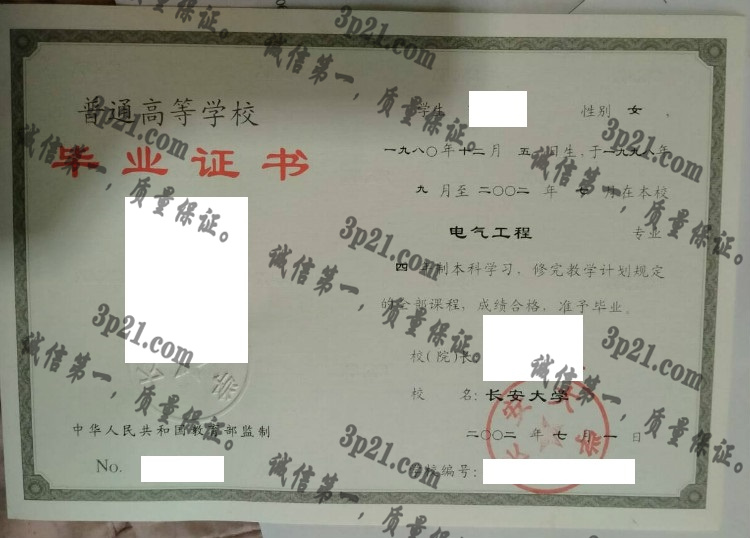 普通高等学校
毕业证书
中华人民共和国教育部监制
No.
学生 性别 女，
一九八〇年十二月 五 日生，于一九九八年
九 月至二〇〇二 年 七 月在本校
电气工程 专业
四 年制本科学习，修完教学计划规定
的全部课程，成绩合格，准予毕业。
校(院)长
校 名：长安大学
二〇〇二 年 七 月 一 日
学校编号：
3p21.com
诚信第一，质量保证。
3p21.com
诚信第一，质量保证。
3p21.com
诚信第一，质量保证。
3p21.com
诚信第一，质量保证。
3p21.com
诚信第一，质量保证。
3p21.com
诚信第一，质量保证。
3p21.com
诚信第一，质量保证。